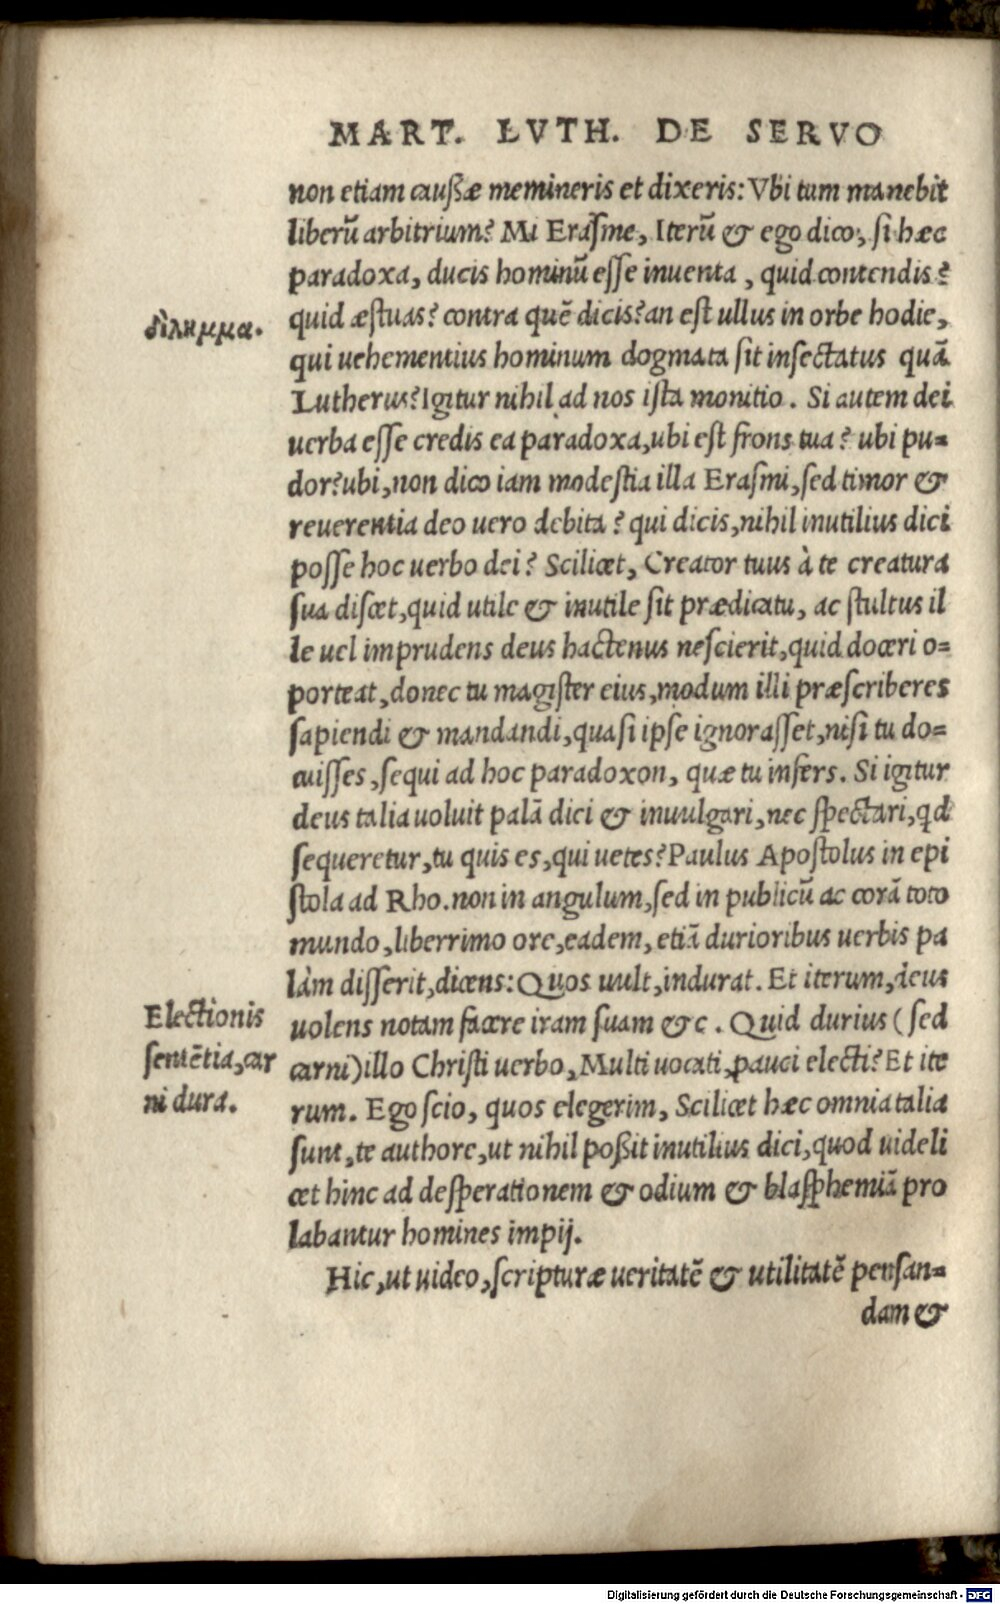 MART. LVTH. DE SERVO
non etiam caußæ memineris et dixeris: Vbi tum manebit
liberũ arbitrium? Mi Eraſme, Iterũ & ego dico, ſi hæc
paradoxa, ducis hominũ eſſe inuenta, quid contendis?
δίλημμα.
quid æſtuas? contra quẽ dicis? an eſt ullus in orbe hodie,
qui uehementius hominum dogmata ſit inſectatus quã
Lutherus? Igitur nihil ad nos iſta monitio. Si autem dei
uerba eſſe credis ea paradoxa, ubi eſt frons tua? ubi pu=
dor? ubi, non dico iam modeſtia illa Eraſmi, ſed timor &
reuerentia deo uero debita? qui dicis, nihil inutilius dici
poſſe hoc uerbo dei? Scilicet, Creator tuus à te creatura
ſua diſcet, quid utile & inutile ſit prædicatu, ac ſtultus il
le uel imprudens deus hactenus neſcierit, quid doceri o=
porteat, donec tu magiſter eius, modum illi præſcriberes
ſapiendi & mandandi, quaſi ipſe ignoraſſet, niſi tu do=
cuiſſes, ſequi ad hoc paradoxon, quæ tu infers. Si igitur
deus talia uoluit palã dici & inuulgari, nec ſpectari, qd
ſequeretur, tu quis es, qui uetes? Paulus Apoſtolus in epi
ſtola ad Rho. non in angulum, ſed in publicũ ac corã toto
mundo, liberrimo ore, eadem, etiã durioribus uerbis pa
làm diſſerit, dicens: Quos uult, indurat. Et iterum, deus
Electionis
ſentẽtia, car
ni dura.
uolens notam facere iram ſuam &c. Quid durius (ſed
carni) illo Chriſti uerbo, Multi uocati, pauci electi? Et ite
rum. Ego ſcio, quos elegerim, Scilicet hæc omnia talia
ſunt, te authore, ut nihil poßit inutilius dici, quod uideli
cet hinc ad deſperationem & odium & blaſphemiã pro
labantur homines impij.
Hic, ut uideo, ſcripturæ ueritatẽ & utilitatẽ penſan=
dam &
Digitalisierung gefördert durch die Deutsche Forschungsgemeinschaft - DFG